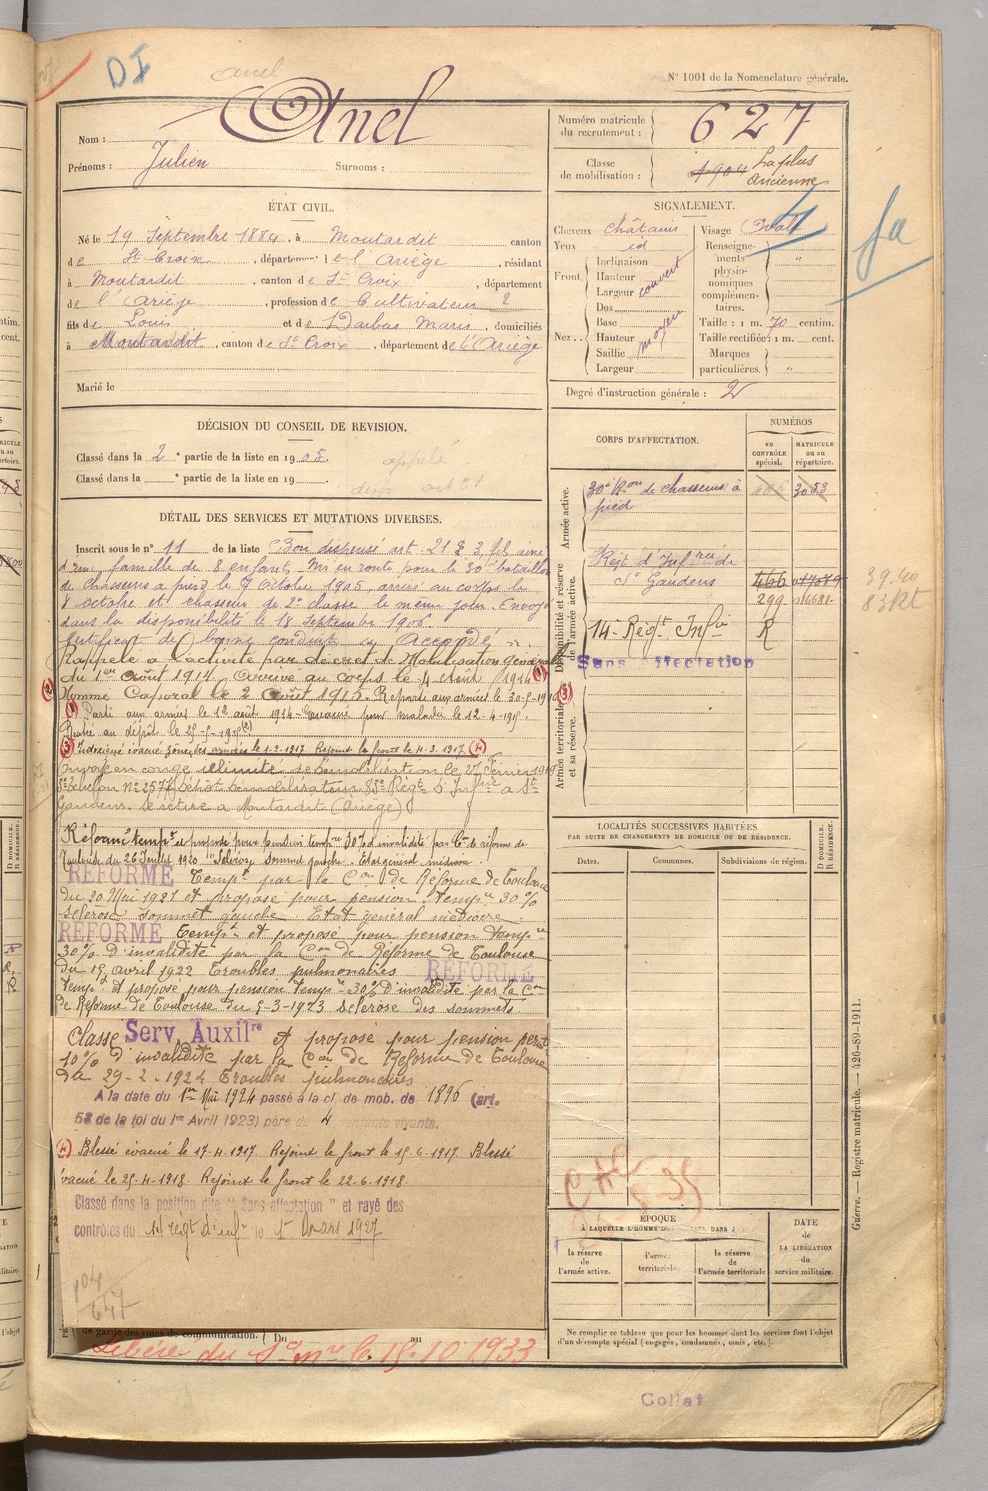 DI
anel
N° 1001 de la Nomenclature générale.
Nom : Anel
Prénoms : Julien Surnoms :
Numéro matricule du recrutement : 627
Classe de mobilisation : 1904 La plus Ancienne
ÉTAT CIVIL.
Né le 19 Septembre 1884, à Moutardit canton
de St Croix, département de l'Ariège, résidant
à Moutardit, canton de St Croix, département
de l'Ariège, profession de Cultivateur 2
fils de Louis et de Darbas Marie, domiciliés
à Moutardit, canton de St Croix, département de l'Ariège
Marié le
SIGNALEMENT.
Cheveux châtains
Yeux id
Front. Inclinaison
Hauteur
Largeur couvert
Nez . . Dos
Base
Hauteur moyen
Saillie
Largeur
Visage Ovale
Renseignements physionomiques complémentaires. "
Taille : 1 m. 70 centim.
Taille rectifiée : 1 m. cent.
Marques particulières. "
fa
Degré d'instruction générale : 2
DÉCISION DU CONSEIL DE REVISION.
Classé dans la 2e partie de la liste en 1905. appelé
Classé dans la e partie de la liste en 19
DÉTAIL DES SERVICES ET MUTATIONS DIVERSES.
Inscrit sous le n° 11 de la liste Bon dispensé art. 21 § 3 fils ainé
d'une famille de 8 enfants. Mis en route pour le 30e bataillon
de chasseurs à pied le 7 Octobre 1905, arrivé au corps le
8 octobre et chasseur de 2e classe le même jour. Envoyé
dans la disponibilité le 18 Septembre 1906.
Certificat de bonne conduite "Accordé".
Rappelé à l'activité par décret de Mobilisation générale
du 1er août 1914. Arrivé au corps le 4 Août 1914 (1)
(2) Nommé Caporal le 2 août 1915. Reparti aux armées le 30-5-1916 (3)
(1) Parti aux armées le 12 août 1914 - Evacué pour maladie le 12-4-1915.
Rentré au dépôt le 25-5-1915 (2)
(3) Intoxiqué évacué zône des armées le 1-2-1917. Rejoint le front le 4-3-1917 (4)
Envoyé en congé illimité de démobilisation le 27 Février 1919
5e échelon N° 2577 dépôt démobilisateur 83e Régt d'Infrie à St
Gaudens. Se retire à Moutardit (Ariège)
Réformé tempre et proposé pour pension tempre 30% d'invalidité par Con de réforme de
Toulouse du 26 Juillet 1920 "Sclérose sommet gauche. Etat général médiocre.
RÉFORMÉ Tempre par la Con de Réforme de Toulouse
du 20 Mai 1921 et proposé pour pension tempre 30%
sclérose sommet gauche. Etat général médiocre.
RÉFORMÉ Tempre et proposé pour pension tempre
30% d'invalidité par la Con de Réforme de Toulouse
du 19 avril 1922 Troubles pulmonaires RÉFORMÉ
tempre et proposé pour pension tempre 30% d'invalidité par la Con
de Réforme de Toulouse du 5-3-1923 sclérose des sommets.
Classé Serv. Auxilre et proposé pour pension permte
10% d'invalidité par la Con de Réforme de Toulouse
du 29-2-1924 Troubles pulmonaires
A la date du 1er Mai 1924 passé à la cl. de mob. de 1896 (art.
58 de la loi du 1er Avril 1923) père de 4 enfants vivants.
(4) Blessé évacué le 17-4-1917 Rejoint le front le 15-6-1917 Blessé
évacué le 25-4-1918. Rejoint le front le 22-6-1918.
Classé dans la position dite "Sans affectation" et rayé des
contrôles du 14e regt d'infie le 1er Mars 1927
104
647
de garde des voies de communication. Du au
Libéré du Sce mre le 15.10.1933
CORPS D'AFFECTATION.
NUMÉROS
AU CONTRÔLE spécial.
MATRICULE ou au répertoire.
Armée active.
30e Bon de chasseurs à pied 3053
Disponibilité et réserve de l'armée active.
Régt d'Infrie de St Gaudens 466 017089
299 016681
39.40
83 Rt
14e Régt Infie R
Sans affectation
Armée territoriale et sa réserve.
LOCALITÉS SUCCESSIVES HABITÉES
PAR SUITE DE CHANGEMENTS DE DOMICILE OU DE RÉSIDENCE.
Dates. Communes. Subdivisions de région. D DOMICILE. R RÉSIDENCE.
ÉPOQUE
À LAQUELLE L'HOMME DOIT PASSER DANS :
la réserve de l'armée active.
l'armée territoriale.
la réserve de l'armée territoriale
DATE de LA LIBÉRATION du service militaire.
Ne remplir ce tableau que pour les hommes dont les services font l'objet
d'un décompte spécial (engagés, condamnés, omis, etc.).
Guerre. — Registre matricule. — 426-89-1911.
Collat